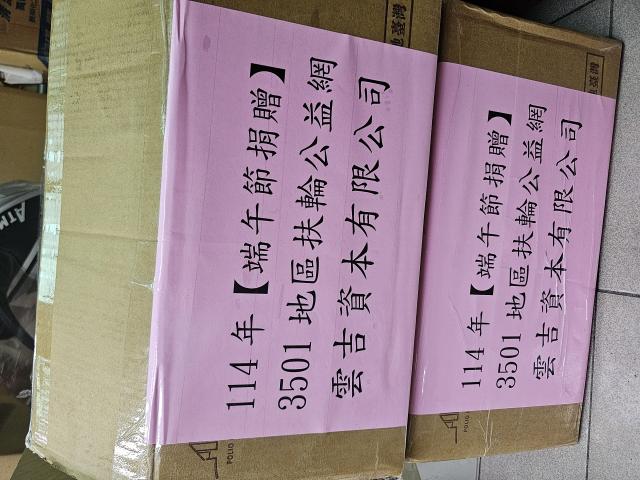 114 年【端午節捐贈】
3501 地區扶輪公益網
雲吉資本有限公司
114 年【端午節捐贈】
3501 地區扶輪公益網
雲吉資本有限公司
地臺灣
地臺灣
POLLO
ATM